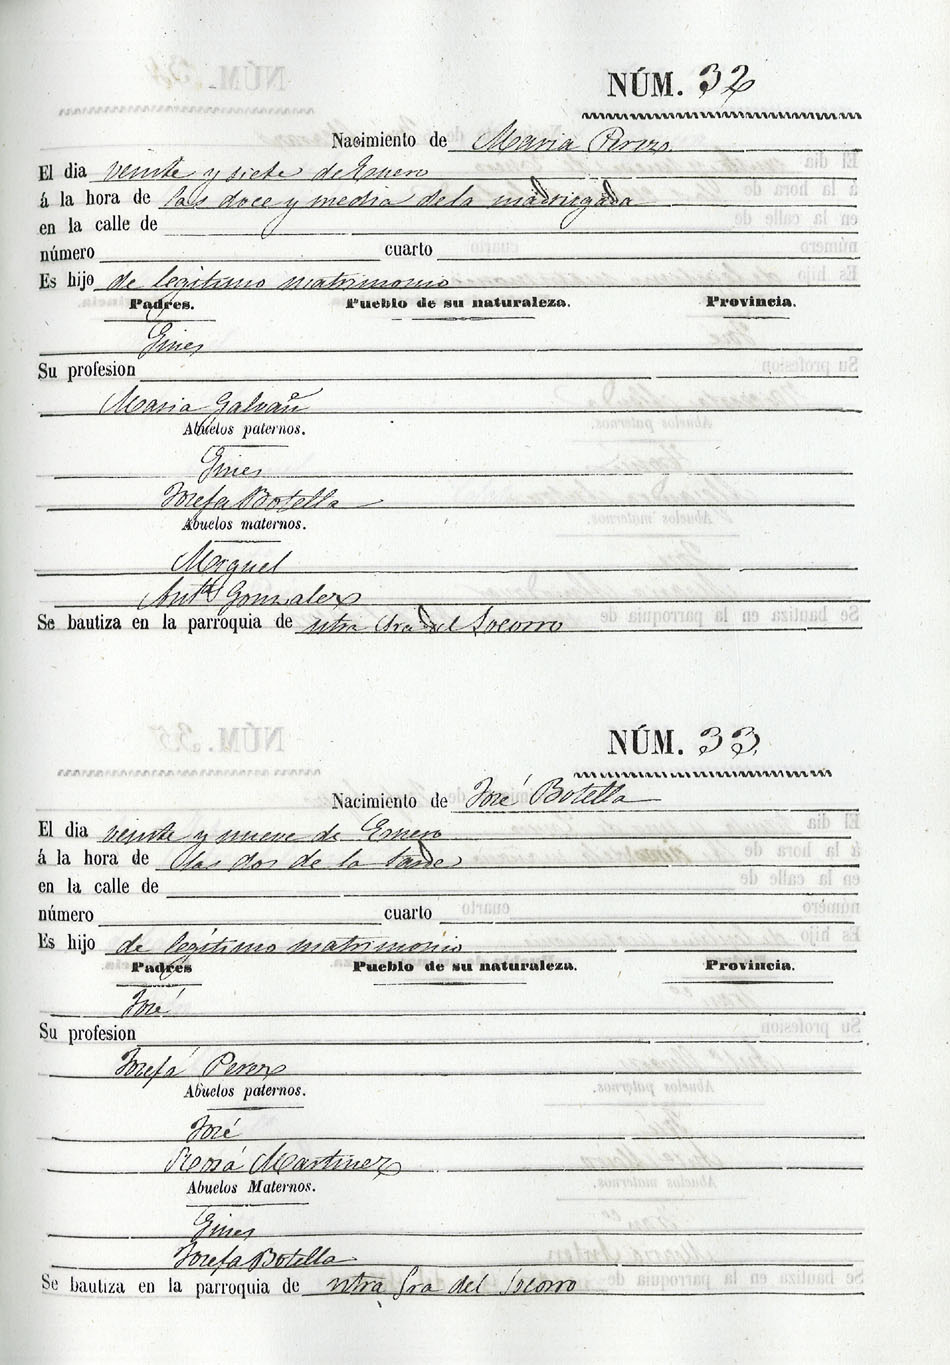 NÚM. 32
Nacimiento de Maria Perez
El dia veinte y siete de Enero
á la hora de las doce y media de la madrugada
en la calle de
número cuarto
Es hijo de legitimo matrimonio
Padres. Pueblo de su naturaleza. Provincia.
Gines
Su profesion
Maria Galvañ
Abuelos paternos.
Gines
Josefa Botella
Abuelos maternos.
Miguel
Antª Gonzalez
Se bautiza en la parroquia de ntra Sra del Socorro
NÚM. 33
Nacimiento de José Botella
El dia veinte y nueve de Enero
á la hora de las dos de la tarde
en la calle de
número cuarto
Es hijo de legitimo matrimonio
Padres Pueblo de su naturaleza. Provincia.
José
Su profesion
Josefa Perez
Abuelos paternos.
José
Rosa Martinez
Abuelos Maternos.
Gines
Josefa Botella
Se bautiza en la parroquia de ntra Sra del Socorro